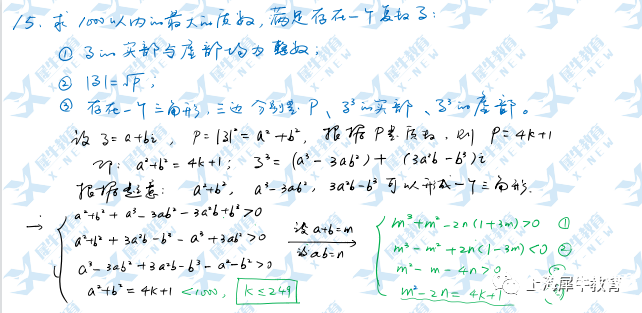 15. 求1000以内的最大的质数,满足存在一个复数z:
① z的实部与虚部均为整数;
② |z|=√P;
③ 存在一个三角形,三边分别是P、z³的实部、z³的虚部。
设z=a+bi, P=|z|²=a²+b², 根据P是质数,则 P=4k+1
即: a²+b²=4k+1; z³=(a³-3ab²)+(3a²b-b³)i
根据题意: a²+b², a³-3ab², 3a²b-b³ 可以形成一个三角形.
→ a²+b²+a³-3ab²-3a²b+b³>0
a²+b²+3a²b-b³-a³+3ab²>0
a³-3ab²+3a²b-b³-a²-b²>0
a²+b²=4k+1 <1000, k≤249
设a+b=m
设ab=n
m³+m²-2n(1+3m)>0 ①
m³-m²+2n(1-3m)<0 ②
m²-m-4n>0
m²-2n=4k+1
上海犀牛教育
犀牛教育
X·NEW